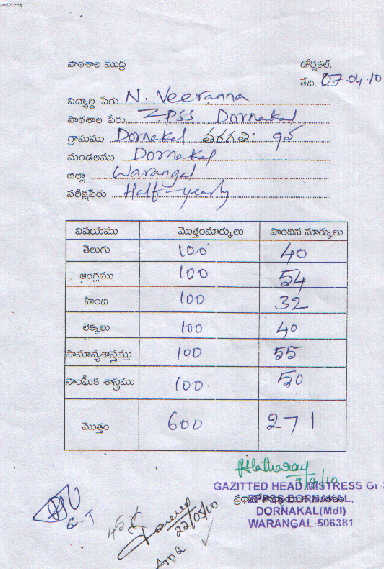 పాఠశాల ముద్ర డోర్నకల్,
తేది. 07-04-10
విద్యార్థి పేరు N. Veeranna
పాఠశాల పేరు ZPSS Dornakal
గ్రామము Dornakal తరగతి: 9వ
మండలము Dornakal
జిల్లా Warangal
పరీక్షపేరు Half-yearly
విషయము మొత్తంమార్కులు పొందిన మార్కులు
తెలుగు 100 40
ఆంగ్లము 100 54
హింది 100 32
లెక్కలు 100 40
సామాన్యశాస్త్రము 100 55
సాంఘిక శాస్త్రము 100 50
మొత్తం 600 271
GAZITTED HEAD MISTRESS Gr-
ZPPSS DORNAKAL,
DORNAKAL(Mdl)
WARANGAL-506381
22/04/10